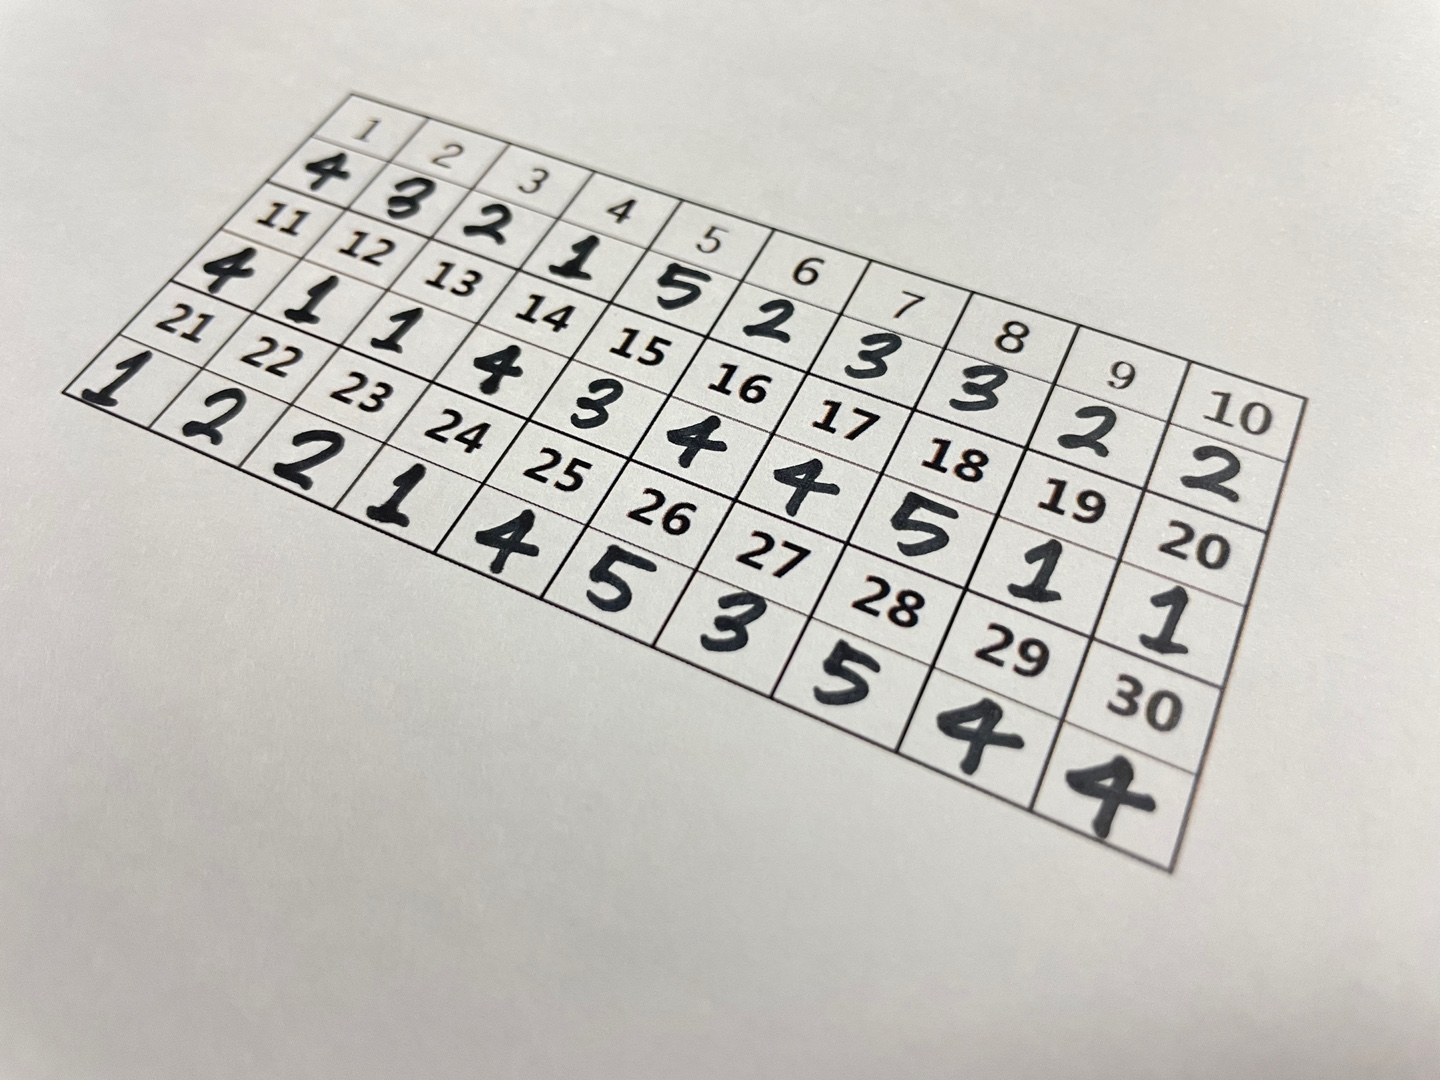 1 2 3 4 5 6 7 8 9 10
4 3 2 1 5 2 3 3 2 2
11 12 13 14 15 16 17 18 19 20
4 1 1 4 3 4 4 5 1 1
21 22 23 24 25 26 27 28 29 30
1 2 2 1 4 5 3 5 4 4